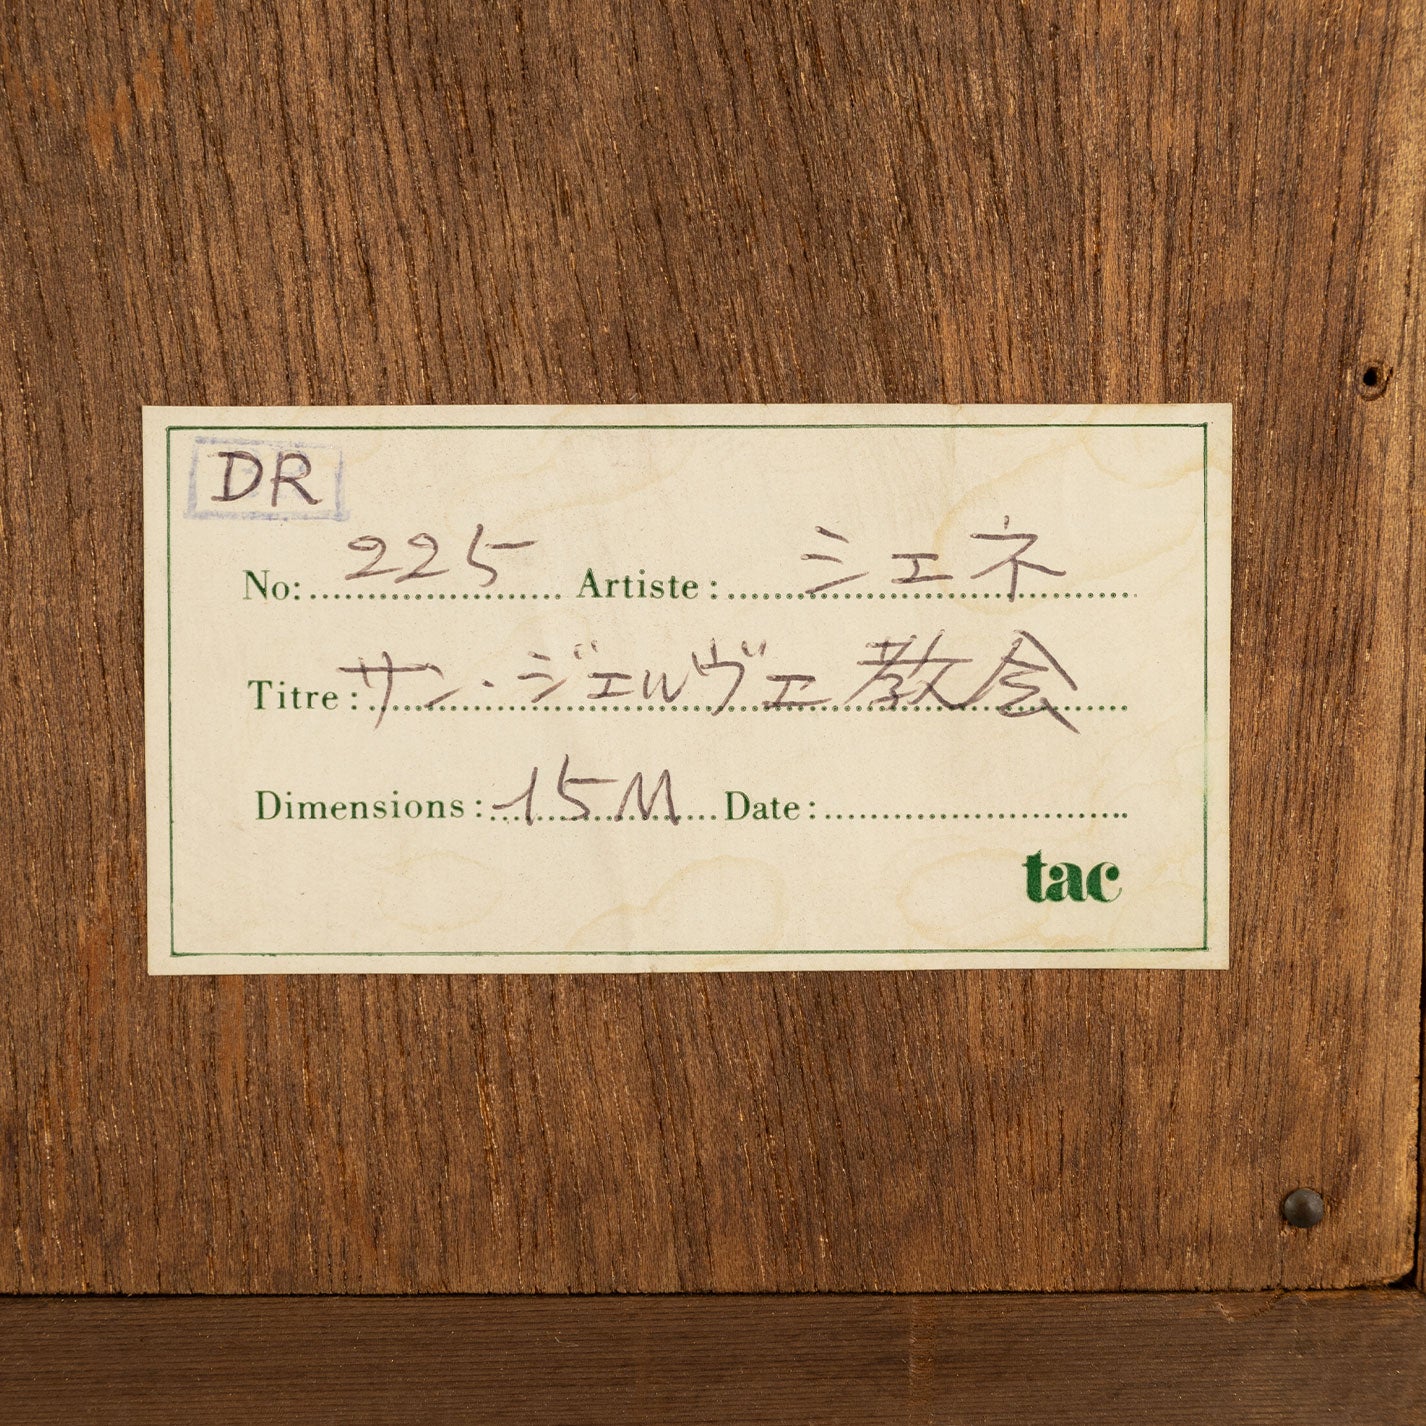 DR
No: 225 Artiste: シェネ
Titre: サン・ジェルヴェ教会
Dimensions: 15M Date:
tac